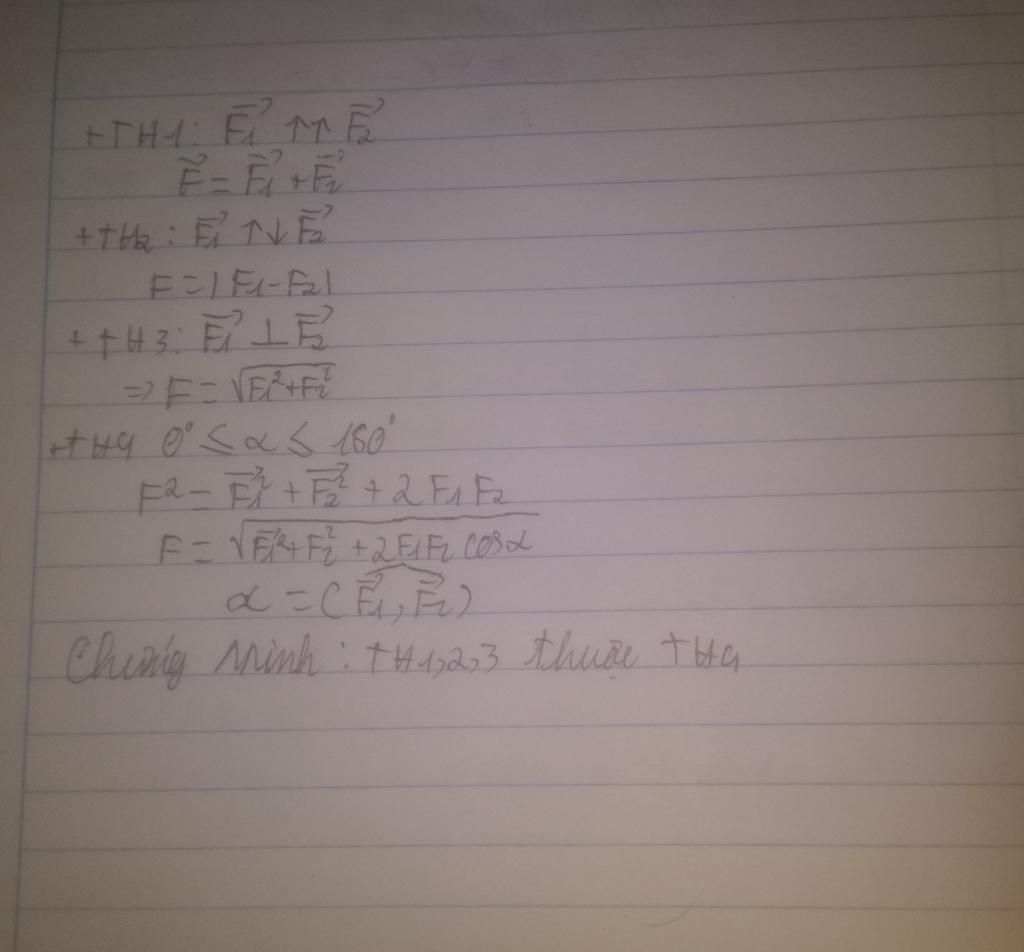 +TH1: F₁⃗ ↑↑ F₂⃗
F⃗ = F₁⃗ + F₂⃗
+TH2: F₁⃗ ↑↓ F₂⃗
F = |F₁ - F₂|
+TH3: F₁⃗ ⊥ F₂⃗
⇒ F = √(F₁² + F₂²)
+TH4 0° ≤ α ≤ 180°
F² = F₁⃗² + F₂⃗² + 2F₁F₂
F = √(F₁⃗² + F₂² + 2F₁F₂ cosα)
α = (F₁⃗, F₂⃗)
Chứng Minh: TH1,2,3 thuộc TH4